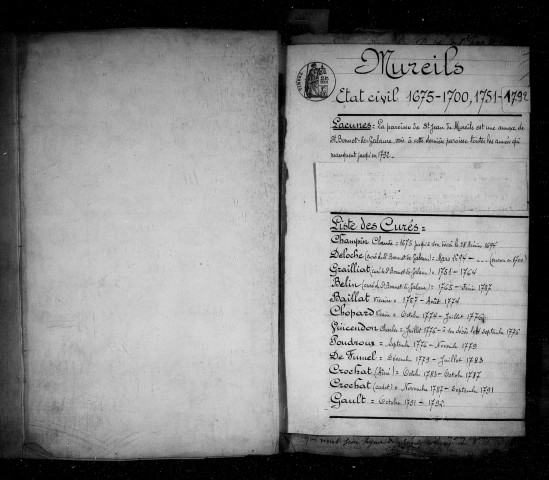 Mureils
Etat civil 1675-1700, 1751-1792
Lacunes = La paroisse de St Jean de Mureils est une annexe de
St Bonnet-de-Galaure, voir à cette dernière paroisse toutes les années qui
manquent jusqu'en 1792.
Liste des Curés =
Champin Claude = 1675 jusqu'à son décès le 28 1694
Deloche (curé de St Bonnet de Galaure) = Mars 1694 -
Grailliat (curé de St Bonnet de Galaure) = 1751 - 1764
Belin (curé de St Bonnet de Galaure) = 1765 - 1767
Baillat Vicaire = 1767 - Août 1774
Chopard Vicaire = Octobre 1774 - Juillet 1776
Charles = Juillet 1776 - à son décès Septembre 1776
Poudroux = Septembre 1776 - Novembre 1779
De Fumel = Décembre 1779 - Juillet 1783
Crochat (Aîné) = Octobre 1783 - Octobre 1787
Crochat (cadet) = Novembre 1787 - Septembre 1791
Gault = Octobre 1791 - 1792